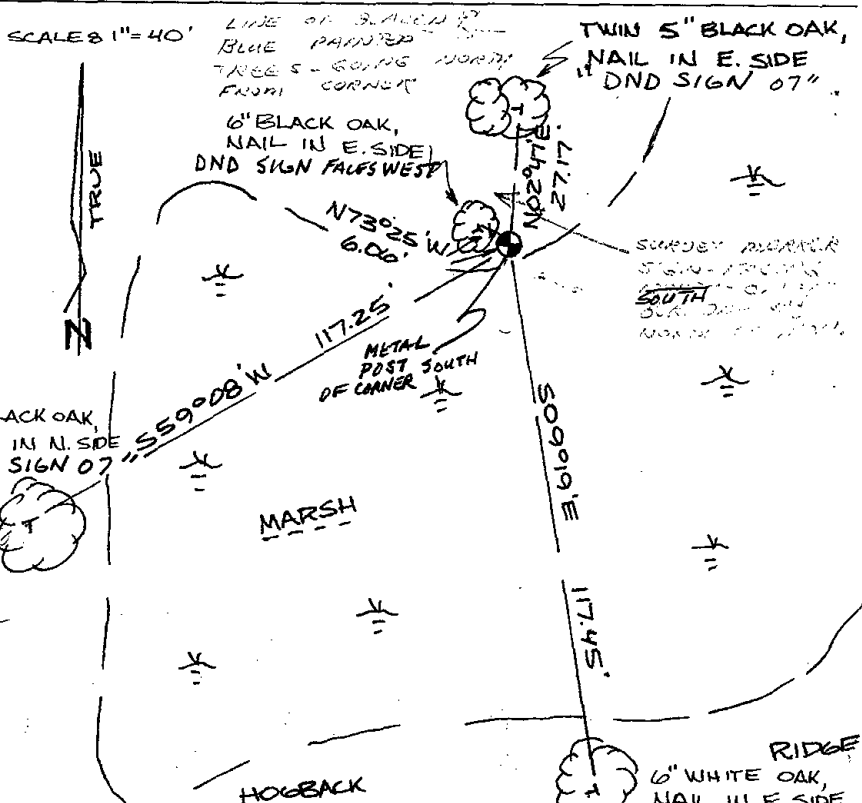 SCALE: 1"= 40'
LINE OF
BLUE PAINTED
TREES - GOING NORTH
FROM CORNER
TWIN 5" BLACK OAK,
NAIL IN E. SIDE
"DND SIGN 07"
6" BLACK OAK,
NAIL IN E. SIDE
DND SIGN FACES WEST
TRUE
N
N73°25'W
6.06'
N02°47'E
27.17'
SURVEY MARKER
SOUTH
117.25'
S59°08'W
METAL
POST SOUTH
OF CORNER
ACK OAK,
IN N. SIDE
SIGN 07"
S09°19'E
117.45'
MARSH
HOGBACK
RIDGE
6" WHITE OAK,
NAIL IN E. SIDE